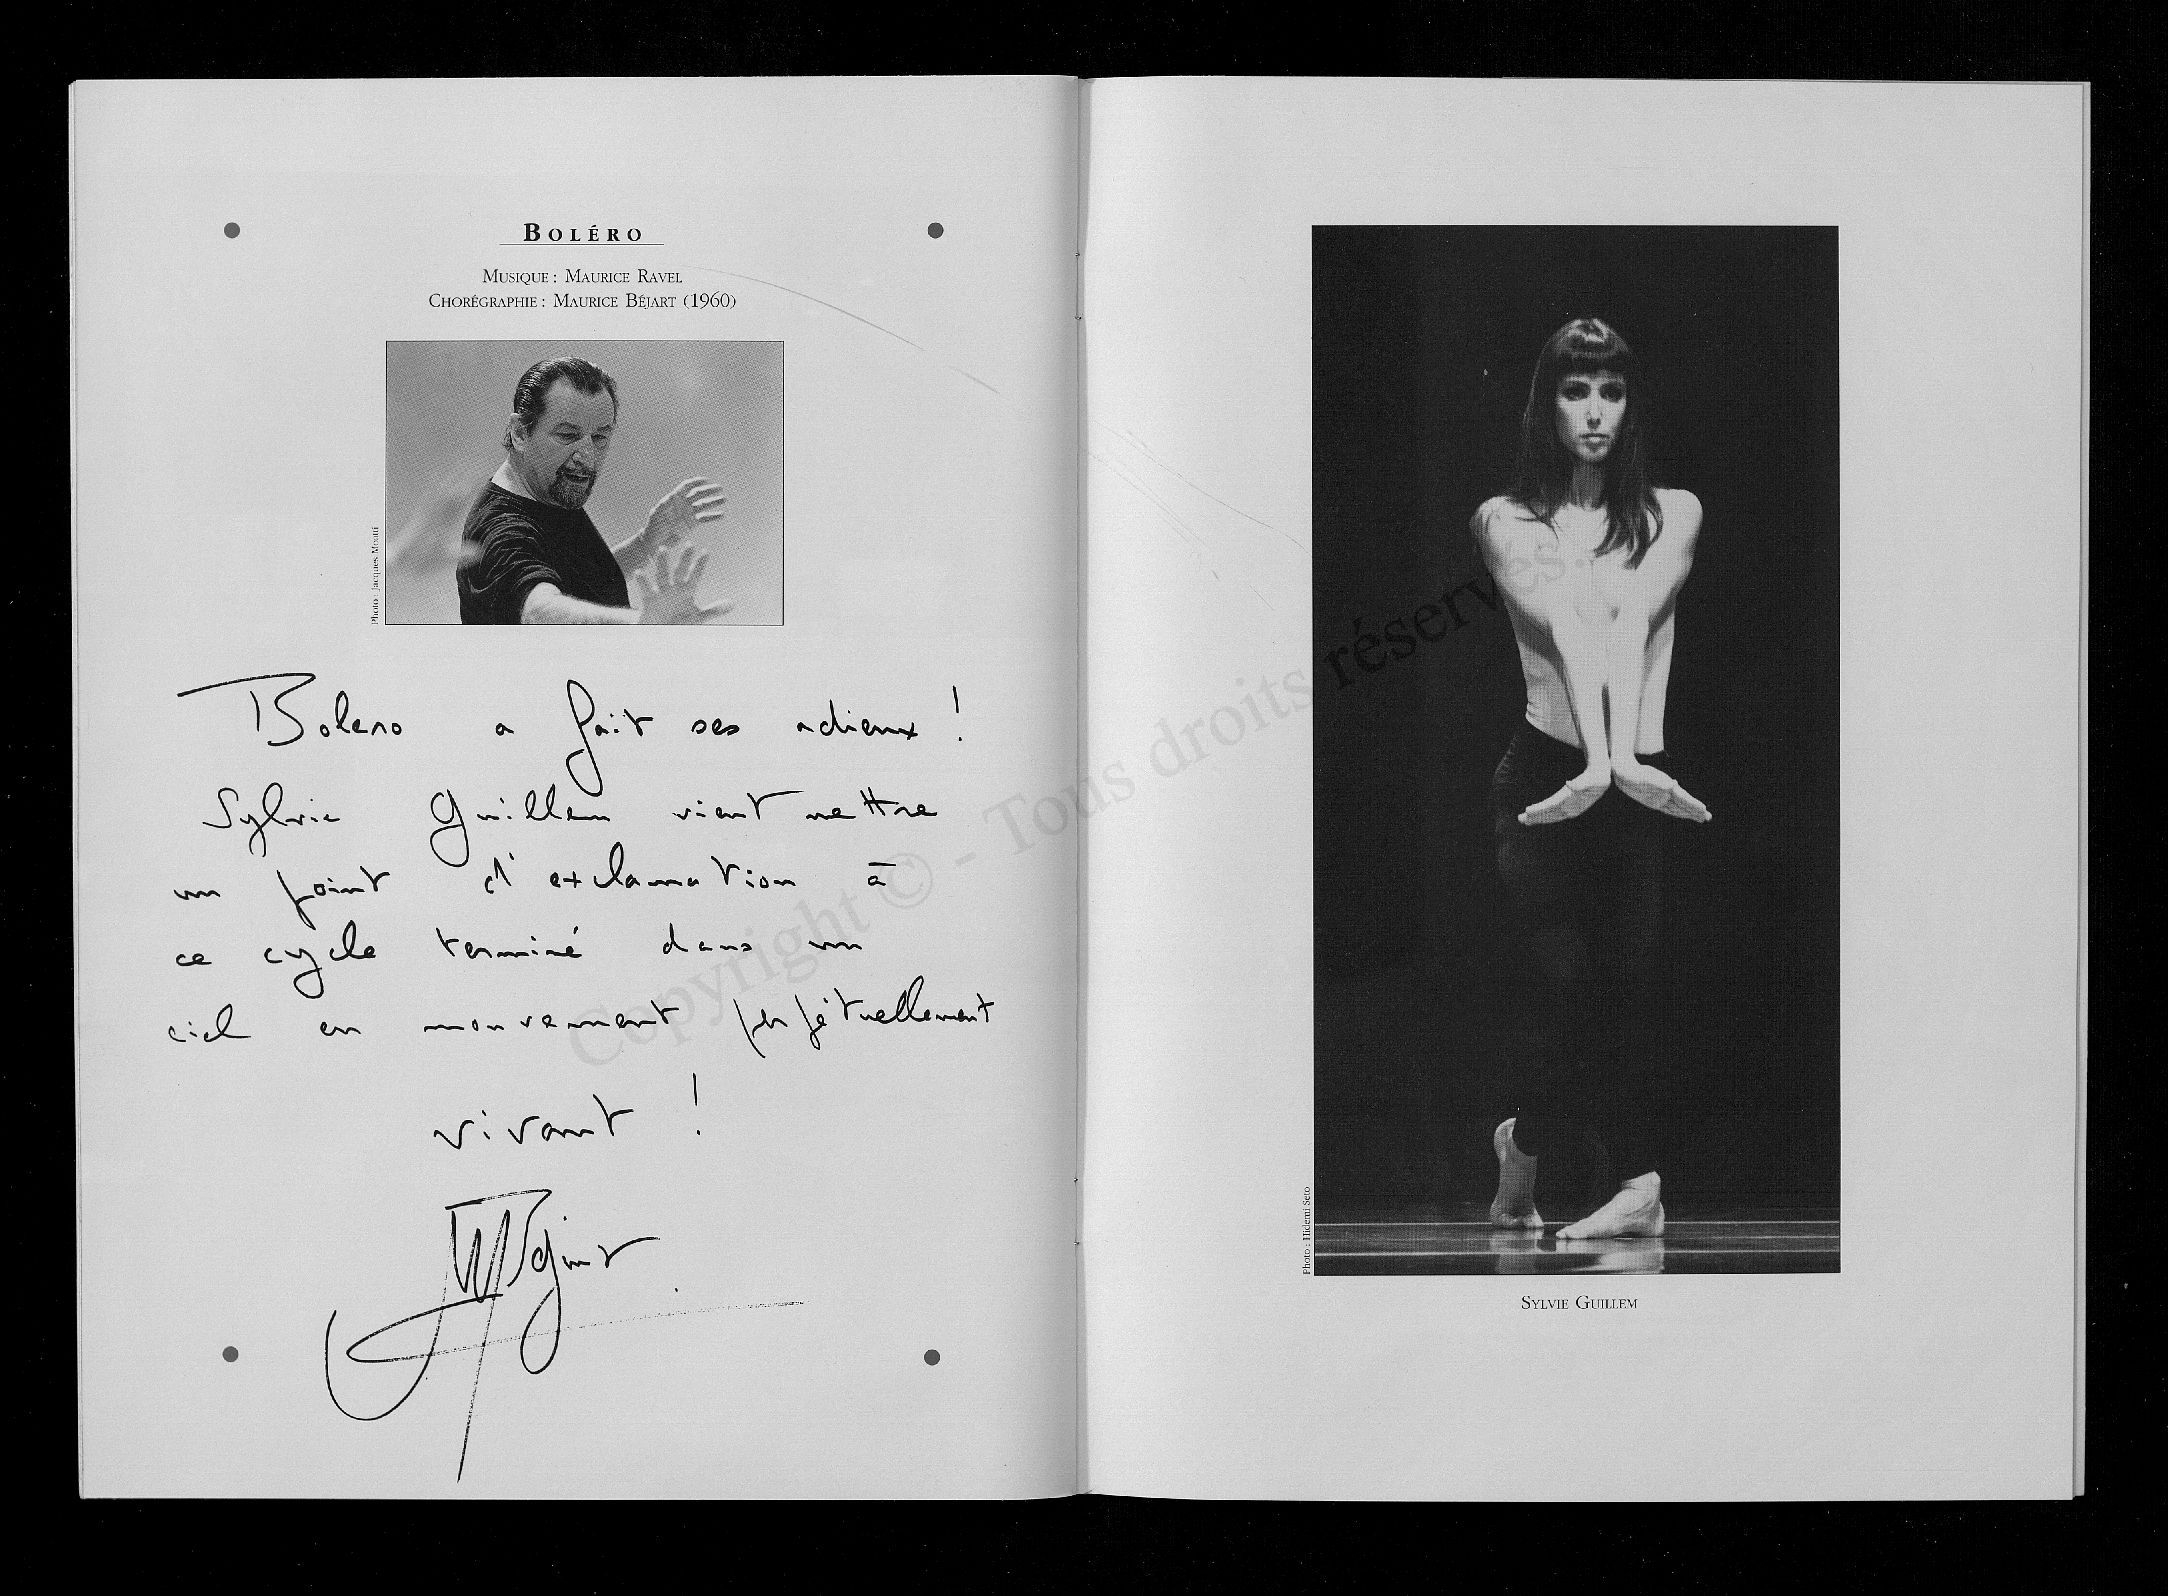 BOLÉRO
MUSIQUE : MAURICE RAVEL
CHORÉGRAPHIE : MAURICE BÉJART (1960)
Photo : Jacques Moatti
Bolero a fait ses adieux !
Sylvie Guillem vient mettre
un point d'exclamation à
ce cycle terminé dans un
ciel en mouvement perpétuellement
vivant !
MBéjart
Photo : Hidemi Seto
SYLVIE GUILLEM
Copyright © - Tous droits réservés.